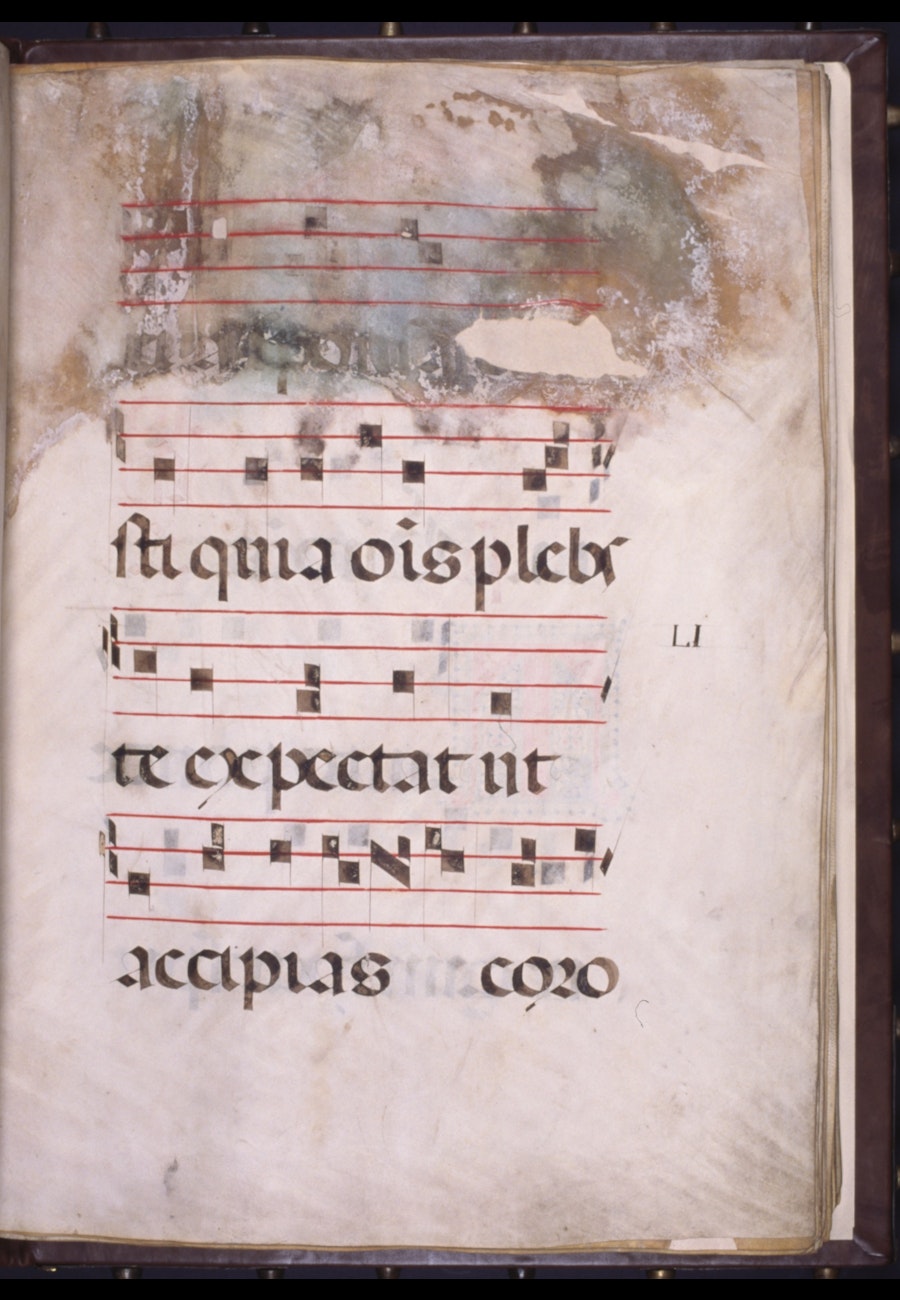 sti quia oi̅s plebs
te expectat ut
LI
accipias coro